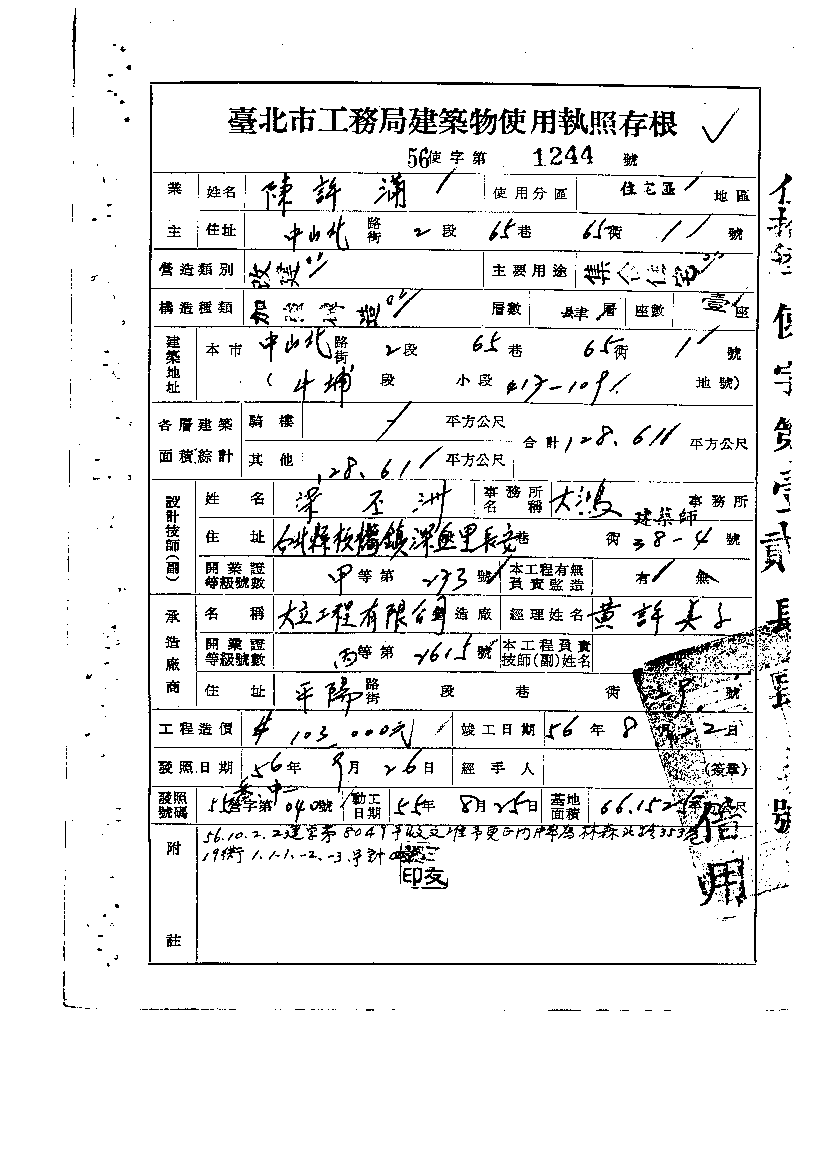 臺北市工務局建築物使用執照存根
56使字第 1244 號
業主 姓名 陳許滿 使用分區 住宅區 地區
住址 中山北 路街 2段 65巷 65街 11號
營造類別 改建 主要用途 集合住宅
構造種類 加 層數 肆層 座數 壹座
建築地址 本市 中山北 路街 2段 65巷 65街 1 號
(牛埔段 小段 417-109 地號)
各層建築面積綜計 騎樓 平方公尺 合計 128.61 平方公尺
其他 128.61 平方公尺
設計技師(副) 姓名 梁丕洲 事務所名稱 大鴻建築師 事務所
住址 台北縣板橋鎮深 里長安 巷 街 38-4號
開業證等級號數 甲等第 233號 本工程有無負責監造 有 無
承造廠商 名稱 大立工程有限公司 造廠 經理姓名 黃許美子
開業證等級號數 丙等第 2615號 本工程負責技師(副)姓名
住址 平陽 路街 段 巷 街 29 號
工程造價 103,000元 竣工日期 56年8月22日
發照日期 56年9月26日 經手人 (簽章)
發照號碼 55 字第 040號 動工日期 55年8月25日 基地面積 66.152
附註 56.10.2.23建字第8049號 准予更正門牌為林森北路353巷
19街1.1-1.-2.-3.號計
印友
借用
使字第壹貳 號